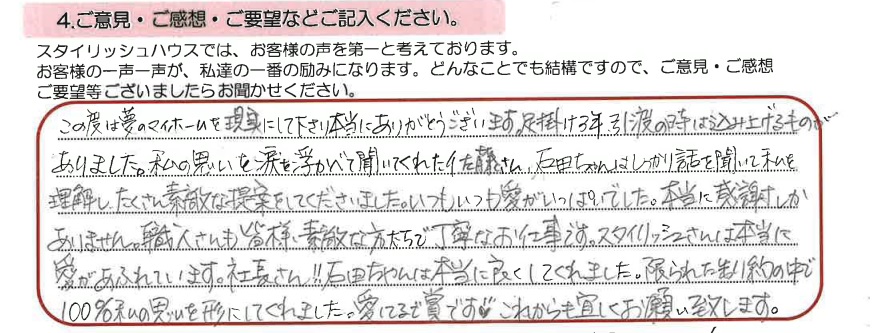 4.ご意見・ご感想・ご要望などご記入ください。
スタイリッシュハウスでは、お客様の声を第一と考えております。
お客様の一声一声が、私達の一番の励みになります。どんなことでも結構ですので、ご意見・ご感想
ご要望等ございましたらお聞かせください。
この度は夢のマイホームを現実にして下さり本当にありがとうございます。足掛け3年引渡の時は込み上げるものが
ありました。私の思いを涙を浮かべて聞いてくれた佐藤さん、石田ちゃんはしっかり話を聞いて私を
理解し、たくさん素敵な提案をしてくださいました。いつもいつも愛がいっぱいでした。本当に感謝しか
ありません。職人さんも皆様、素敵な方たちで丁寧なお仕事です。スタイリッシュさんは本当に
愛があふれています。社長さん!!石田ちゃんは本当に良くしてくれました。限られた制約の中で
100%私の思いを形にしてくれました。愛てるで賞です♡これからも宜しくお願い致します。